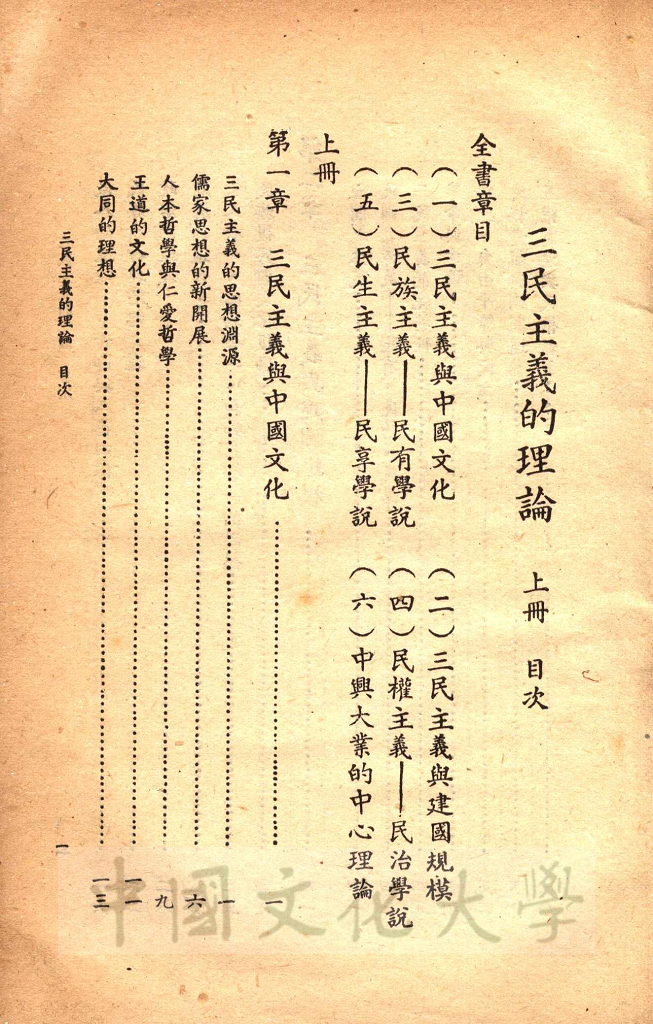 三民主義的理論　上冊　目次
全書章目
（一）三民主義與中國文化　（二）三民主義與建國規模
（三）民族主義——民有學說　（四）民權主義——民治學說
（五）民生主義——民享學說　（六）中興大業的中心理論
上冊
第一章　三民主義與中國文化…………一
三民主義的思想淵源…………一
儒家思想的新開展…………六
人本哲學與仁愛哲學…………九
王道的文化…………一一
大同的理想…………一三
三民主義的理論　目次　一
中國文化大學